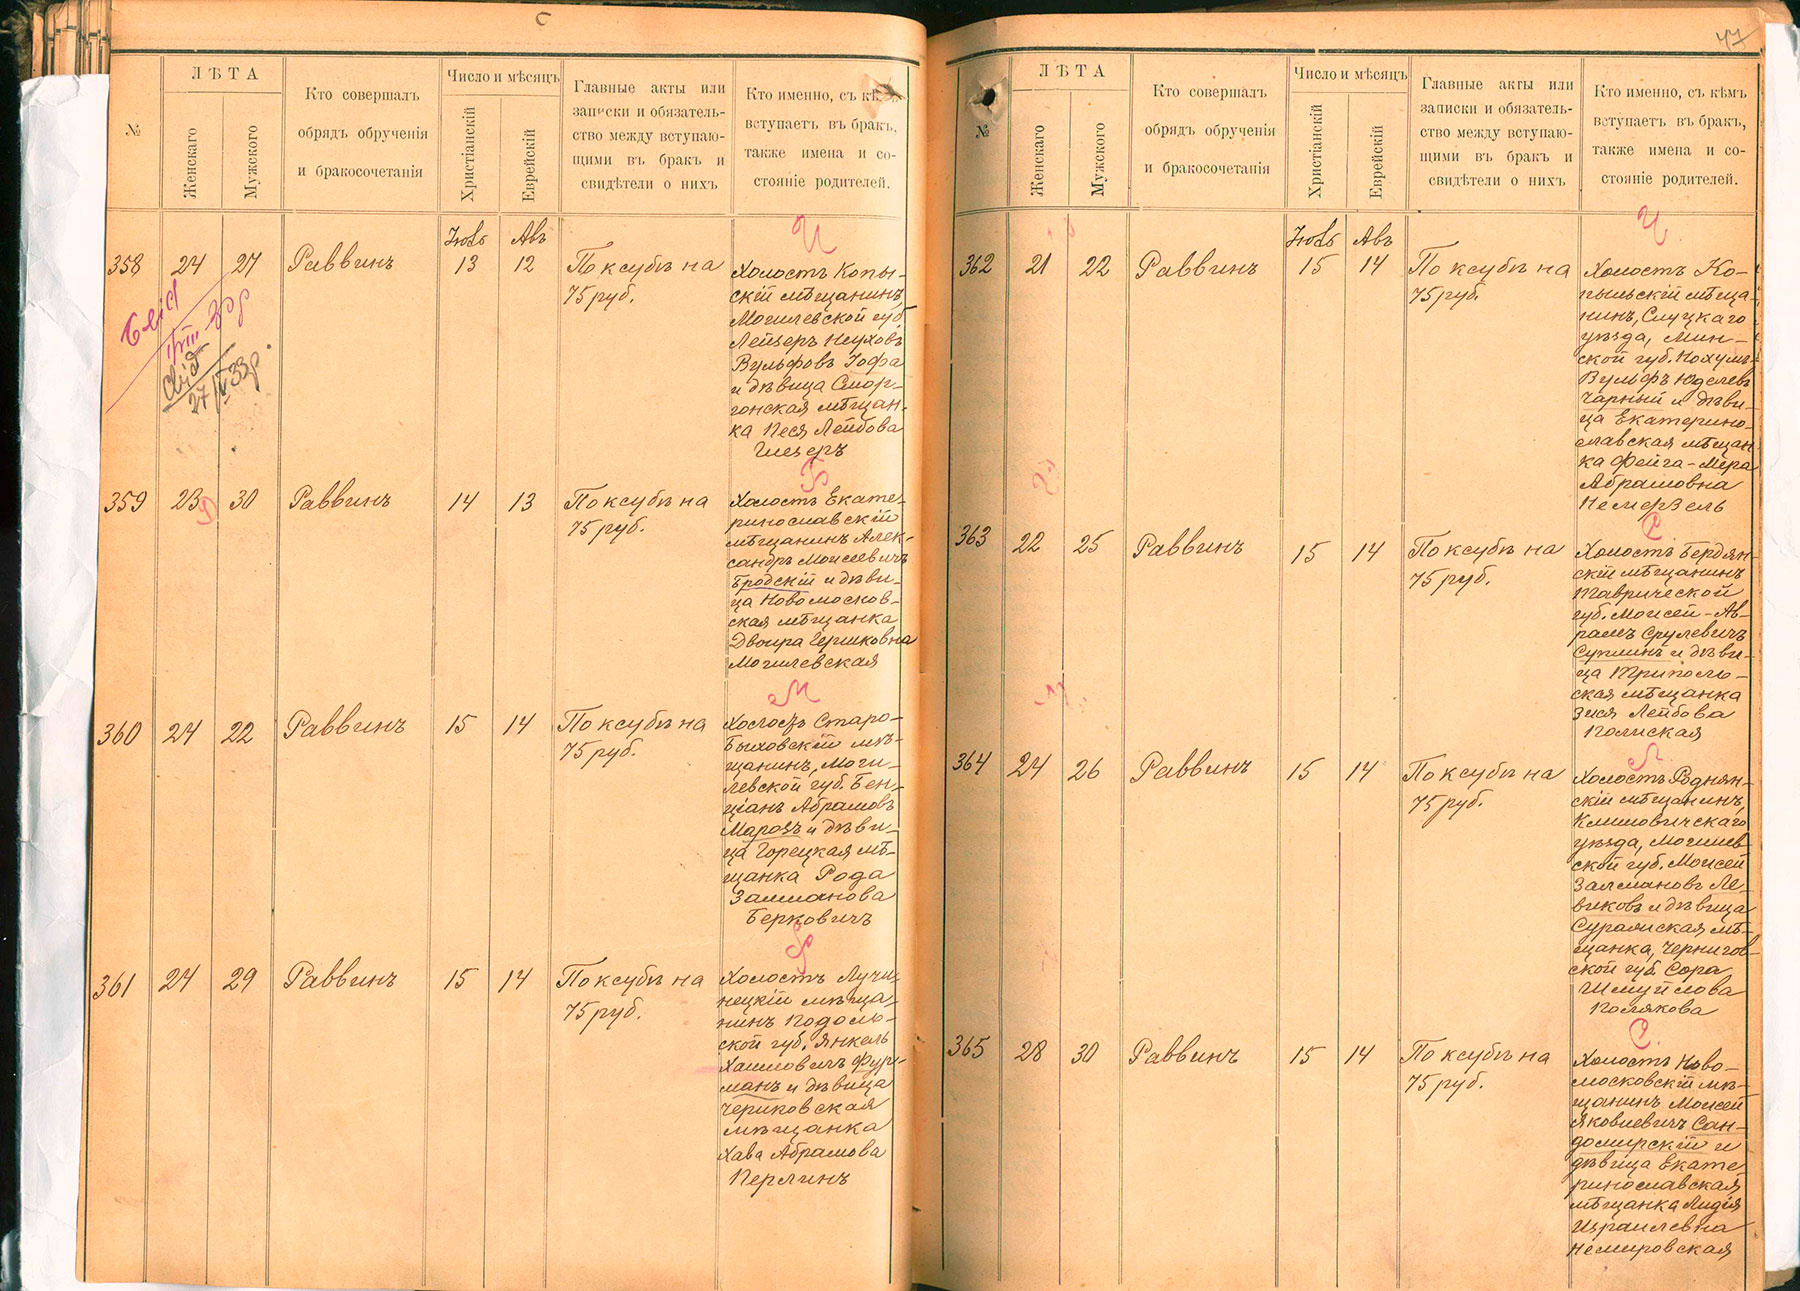 С
№
ЛѢТА
Женскаго
Мужского
Кто совершалъ
обрядъ обрученія
и бракосочетанія
Число и мѣсяцъ
Христіанскій
Еврейскій
Главные акты или
записки и обязатель-
ство между вступаю-
щими въ бракъ и
свидѣтели о нихъ
Кто именно, съ кѣмъ
вступаетъ въ бракъ,
также имена и со-
стояніе родителей.
Июль
Авъ
И
358
24
27
Раввинъ
13
12
По ксубѣ на
75 руб.
Холостъ Копы-
скій мѣщанинъ,
Могилевской губ.
Лейзеръ
Вульфовъ Іофа
и дѣвица Смор-
гонская мѣщан-
ка Песя Лейбова
27/V 33р.
Б
359
23
30
Раввинъ
14
13
По ксубѣ на
75 руб.
Холостъ Екате-
ринославскій
мѣщанинъ Алек-
сандръ Моисеевичъ
Бродскій и дѣви-
ца Новомосков-
ская мѣщанка
Двойра Гершковна
Могилевская
М
360
24
22
Раввинъ
15
14
По ксубѣ на
75 руб.
Холостъ Старо-
Быховскій мѣ-
щанинъ, Моги-
левской губ. Бен-
ціанъ Абрамовъ
Марозъ и дѣви-
ца Горецкая мѣ-
щанка Рода
Залманова
Берковичъ
Ф
361
24
29
Раввинъ
15
14
По ксубѣ на
75 руб.
Холостъ Лучи-
нецкій мѣща-
нинъ Подоль-
ской губ. Янкель
Хаимовичъ Фур-
манъ и дѣвица
Чериковская
мѣщанка
Хава Абрамова
Перлинъ
47
№
ЛѢТА
Женскаго
Мужского
Кто совершалъ
обрядъ обрученія
и бракосочетанія
Число и мѣсяцъ
Христіанскій
Еврейскій
Главные акты или
записки и обязатель-
ство между вступаю-
щими въ бракъ и
свидѣтели о нихъ
Кто именно, съ кѣмъ
вступаетъ въ бракъ,
также имена и со-
стояніе родителей.
Июль
Авъ
Ч
362
21
22
Раввинъ
15
14
По ксубѣ на
75 руб.
Холостъ Ко-
пыльскій мѣща-
нинъ, Слуцкаго
уѣзда, Мин-
ской губ. Нохумъ-
Вульфъ Юделевъ
Чарный и дѣви-
ца Екатерино-
славская мѣщан-
ка Фейга-Мера
Абрамовна
Немерзель
С
363
22
25
Раввинъ
15
14
По ксубѣ на
75 руб.
Холостъ Бердян-
скій мѣщанинъ
Таврической
губ. Моисей-Ав-
рамъ Срулевичъ
Суплинъ и дѣви-
ца Триполь-
ская мѣщанка
Зися Лейбова
Полиская
Л
364
24
26
Раввинъ
15
14
По ксубѣ на
75 руб.
Холостъ Роднян-
скій мѣщанинъ,
Климовичскаго
уѣзда, Могилев-
ской губ. Моисей
Залмановъ Ле-
виковъ и дѣвица
Суражская мѣ-
щанка, Чернигов-
ской губ. Сора
Шмуйлова
Полякова
С
365
28
30
Раввинъ
15
14
По ксубѣ на
75 руб.
Холостъ Ново-
московскій мѣ-
щанинъ Моисей
Яковлевичъ Сан-
домирскій и
дѣвица Екате-
ринославская
мѣщанка Лидія
Израилевна
Немировская